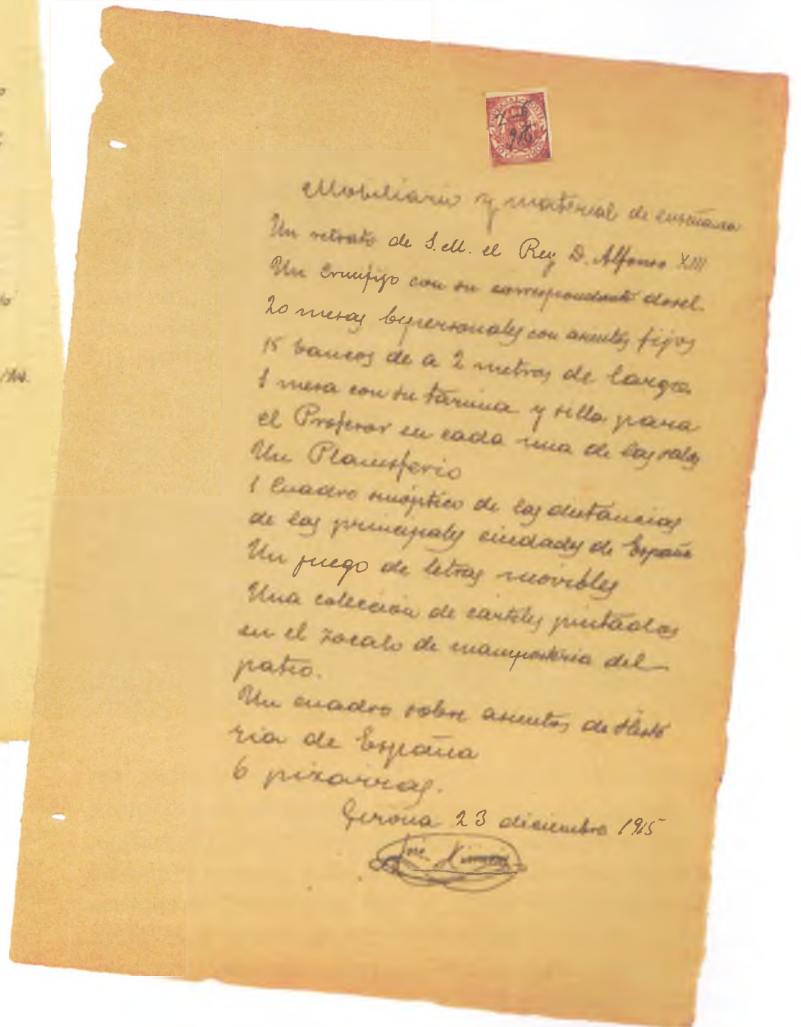 Mobiliario y material de enseñanza
Un retrato de S.M. el Rey D. Alfonso XIII
Un Crucifijo con su correspondiente dosel.
20 mesas bipersonales con asientos fijos
15 bancos de a 2 metros de largo
1 mesa con su tarima y silla para
el Profesor en cada una de las salas
Un Planisferio
1 Cuadro sinóptico de las distancias
de las principales ciudades de España
Un juego de letras movibles
Una colección de carteles pintados
en el zocalo de mamposteria del
patio.
Un cuadro sobre asuntos de Histo
ria de España
6 pizarras.
Gerona 23 diciembre 1915
José